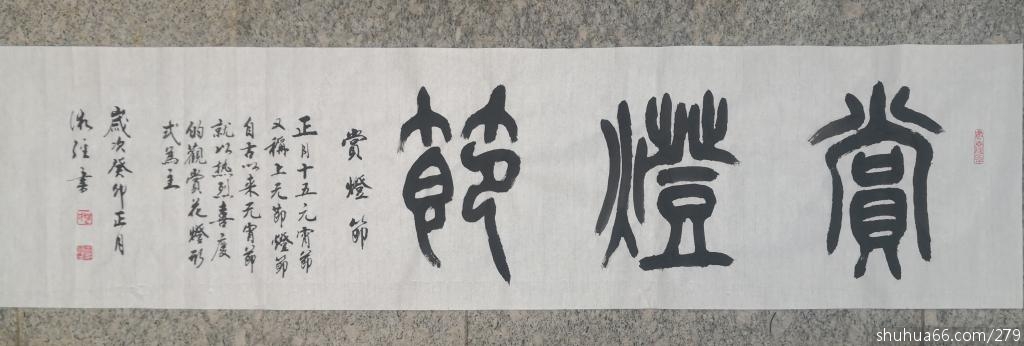 賞燈節
賞燈節
正月十五元宵節
又稱上元節燈節
自古以来元宵節
就以热烈喜度
的觀賞花燈形
式爲主
歲次癸卯正月
書
shuhua66.com/279